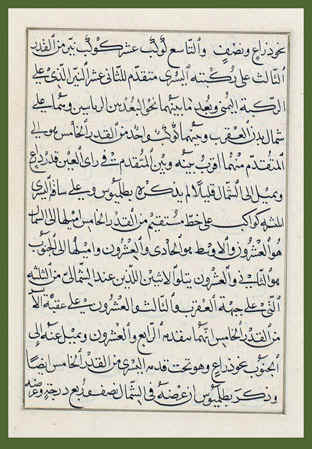 نحو ذراع ونصف والتاسع لو كب عشر كوكب نير من القدر
الثالث على ركبته اليسرى متقدم للثاني عشر النير الذي على
الركبة اليمنى وبعد ما بينهما نحو البعد بين الرأسين وهما على
شمال بدن العقرب وبينهما كوكب واحد من القدر الخامس هو إلى
المتقدم منهما أقرب بينه وبين المتقدم في رأي العين قدر ذراع
ويميل إلى الشمال قليلا لم يذكره بطلميوس وعلى ساقه اليسرى
ثلثة كواكب على خط مستقيم من القدر الخامس أميلها إلى الشمال
هو العشرون والأوسط هو الحادي والعشرون وأميلها إلى الجنوب
هو الثاني والعشرون يتلو الاثنين اللذين عند الشمالي من الثلثة
التي على جبهة العقرب والثالث والعشرون على عقبه
من القدر الخامس أيضا سفله الرابع والعشرون ويميل عنه إلى
الجنوب نحو ذراع وهو تحت قدمه اليسرى من القدر الخامس أيضا
وذكر بطلميوس أن عرضه في الشمال نصف وربع درجة وعرضه